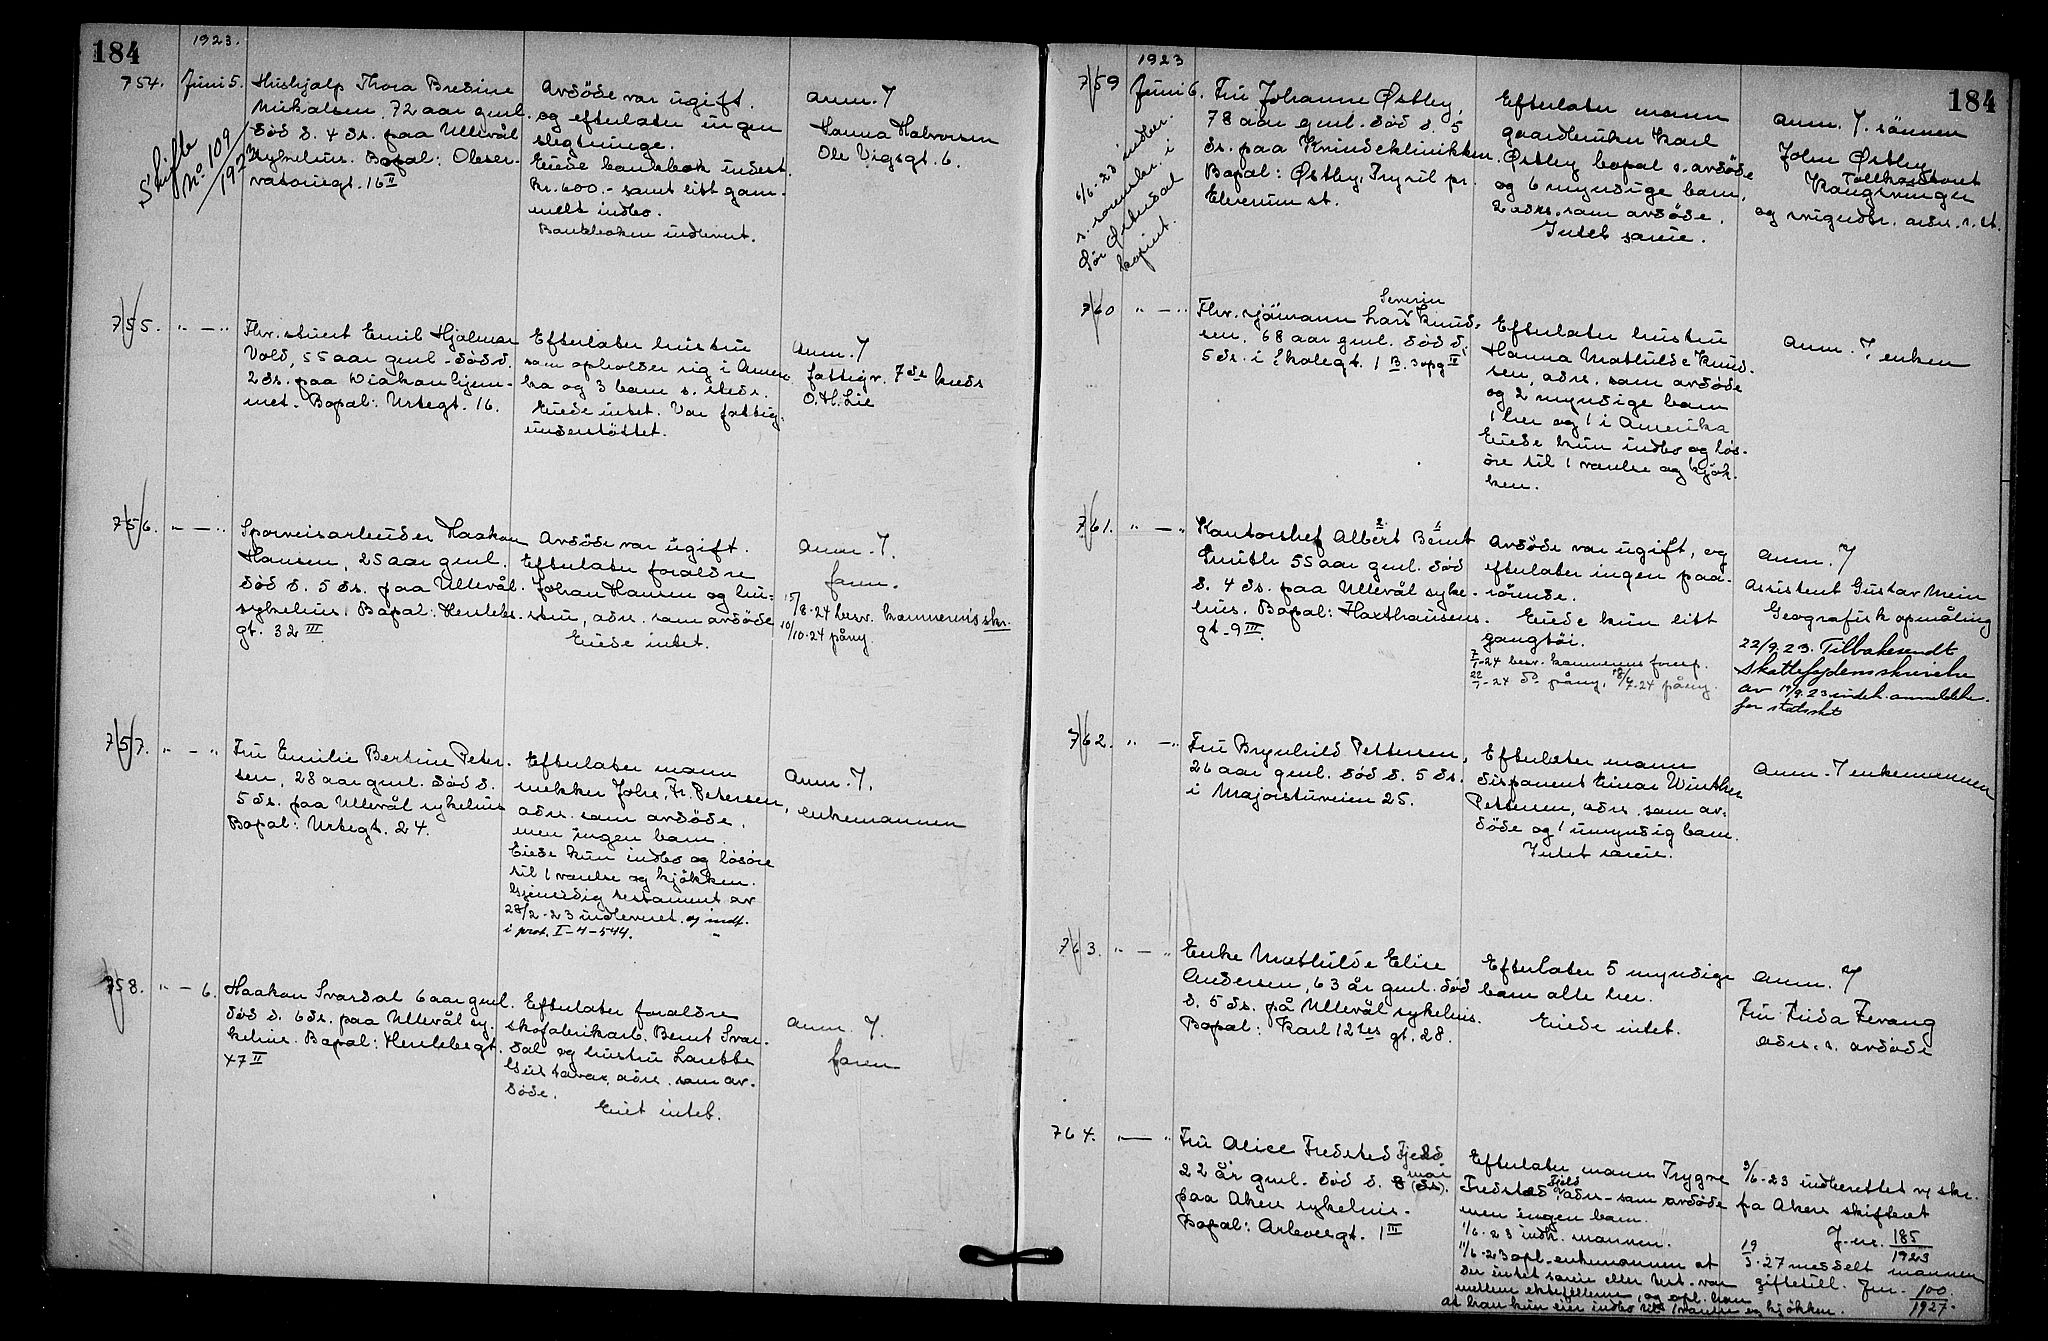 184
1923.
754.
Juni 5.
Skifte
No. 109/1923
Hushjelp Thora Bredine
Mikalsen, 72 aar gml.
död d. 4 ds. paa Ullevål
sykehus. Bopal: Obser-
vatoriegt. 16 II
Avdöde var ugift.
og efterlater ingen
slegtninge.
Eiede bankbok indest.
kr. 600.- samt litt gam-
melt indbo.
Bankboken indlevert.
Anm. 7
Hanna Halvorsen
Ole Vigsgt. 6.
755.
" — "
Fhv. stuert Emil Hjalmar
Vold, 55 aar gml. död d.
2 ds. paa Diakonhjem-
met. Bopal: Urtegt. 16.
Efterlater hustru
som opholder sig i Ameri-
ka og 3 barn s. steds.
Eiede intet. Var fattig-
understöttet.
Anm. 7
fattigv. 7de kreds
O. H. Lie
756.
" — "
Sporveisarbeider Haakon
Hansen, 25 aar gml.
död d. 5 ds. paa Ullevål
sykehus. Bopal: Herslebs-
gt. 32 III
Avdöde var ugift.
Efterlater foraldre
Johan Hansen og hu-
stru, adr. som avdöde
Eiede intet.
Anm. 7.
faren.
15/8-24 besv. kæmnerens skr.
10/10-24 påny.
757.
" — "
Fru Emilie Bertine Peter-
sen, 28 aar gml. död d.
5 ds. paa Ullevål sykehus
Bopal: Urtegt. 24.
Efterlater mann
mekker Johs. Fr. Petersen,
adr. som avdöde,
men ingen barn.
Eiede kun indbo og lösöre
til 1 værelse og kjökken.
Gjensidig testament av
28/2-23 indlevert og indf.
i prot. I-4-544.
Anm. 7.
enkemannen
758.
" — 6.
Haakon Svardal 6 aar gml.
död d. 6 ds. paa Ullevål sy-
kehus. Bopal: Herslebsgt.
47 II
Efterlater foraldre
skofabrikarb. Bernt Svar-
dal og hustru Laretta
adr. som av-
döde.
Eiet intet.
Anm. 7.
faren
184
1923
759
Juni 6.
6/6-23 indber.
t. sorenskr. i
Sör Østerdal
kopiert.
Fru Johanne Østby,
78 aar gml. död d. 5
ds. paa Kvindeklinikken
Bopal: Østby, Trysil pr.
Elverum st.
Efterlater mann
gaardbruker Karl
Østby bopal s. avdöde
og 6 myndige barn,
2 adrs. som avdöde.
Intet særeie.
Anm. 7. sönnen
John Østby
Tollkontoret
Kongsvinger
og svigerdtr. adr. s. st.
760
" — "
Fhv. sjömann Lars Severin Knud-
sen, 68 aar gml. död d.
5 ds. i Skolegt. 1 B. 3 opg II
Efterlater hustru
Hanna Mathilde Knud-
sen, adr. som avdöde
og 2 myndige barn
1 her og 1 i Amerika
Eiede kun indbo og lös-
öre til 1 værelse og kjök-
ken.
Anm. 7, enken
761.
" — "
Kontorchef Albert Bernt
55 aar gml. död
d. 4 ds. paa Ullevål syke-
hus. Bopal: Haxthausens
gt. 9 III.
Avdöde var ugift, og
efterlater ingen paa-
rörende.
Eiede kun litt
gangtöi.
7/1-24 besv. kæmnerens foresp.
22/1-24 do påny, 18/7-24 påny.
Anm. 7
Assistent Gustav
Geografisk opmåling
22/9.23. Tilbakesendt
skattefogdens skrivelse
av 19/9.23
for
762.
" — "
Fru Brynhild Pettersen,
26 aar gml. död d. 5 ds.
i Majorstuveien 25.
Efterlater mann
disponent Einar Winther
Pettersen, adr. som av-
döde og 1 umyndig barn.
Intet særeie.
Anm. 7 enkemannen
763.
" — "
Enke Mathilde Elise
Andersen, 63 år gml. död
d. 5 ds. på Ullevål sykehus.
Bopal: Karl 12tes gt. 28.
Efterlater 5 myndige
barn alle her.
Eiede intet.
Anm. 7
Fru Frida Fevang
adr. s. avdöde
764.
" — "
Fru Alice Fredsted Fjeld
22 år gml. död d. 8 mai (ds).
paa Aker sykehus.
Bopal: Arbosgt. 1 III
Efterlater mann Trygve
Fredsted Fjeld, adr. som avdöde
men ingen barn.
1/6-23 indk. mannen.
11/6-23 opl. enkemannen at
der intet særeie eller test. var
mellem ektefellene, og opl. han
at han kun eier indbo til 1 værelse og kjökken.
3/6-23 indberettet v/ skr.
fra Aker skifteret
J.nr. 185/1923
19/3-27 meddelt mannen
giftetill. Jnr. 100/1927.